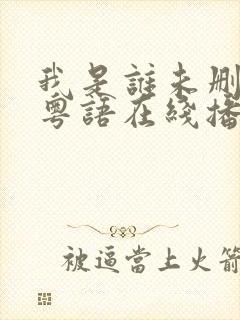 我是誰未删
粵語在綫播
被逼當上火箭